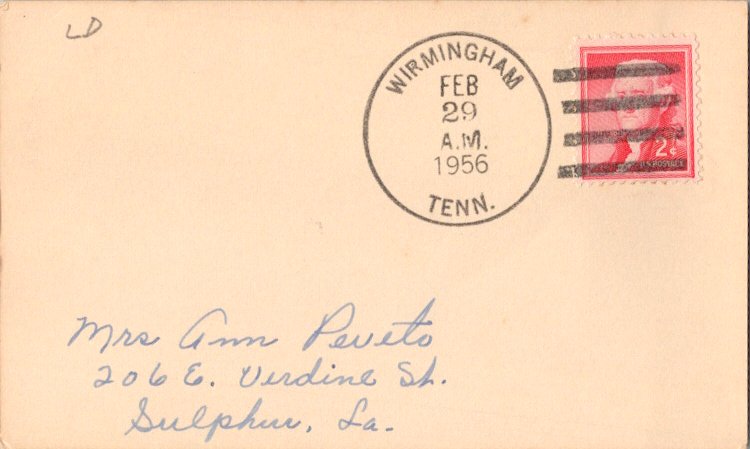 LD
WIRMINGHAM
FEB
29
A.M.
1956
TENN.
2¢
U.S. POSTAGE
Mrs Ann Peveto
206 E. Verdine St.
Sulphur, La.